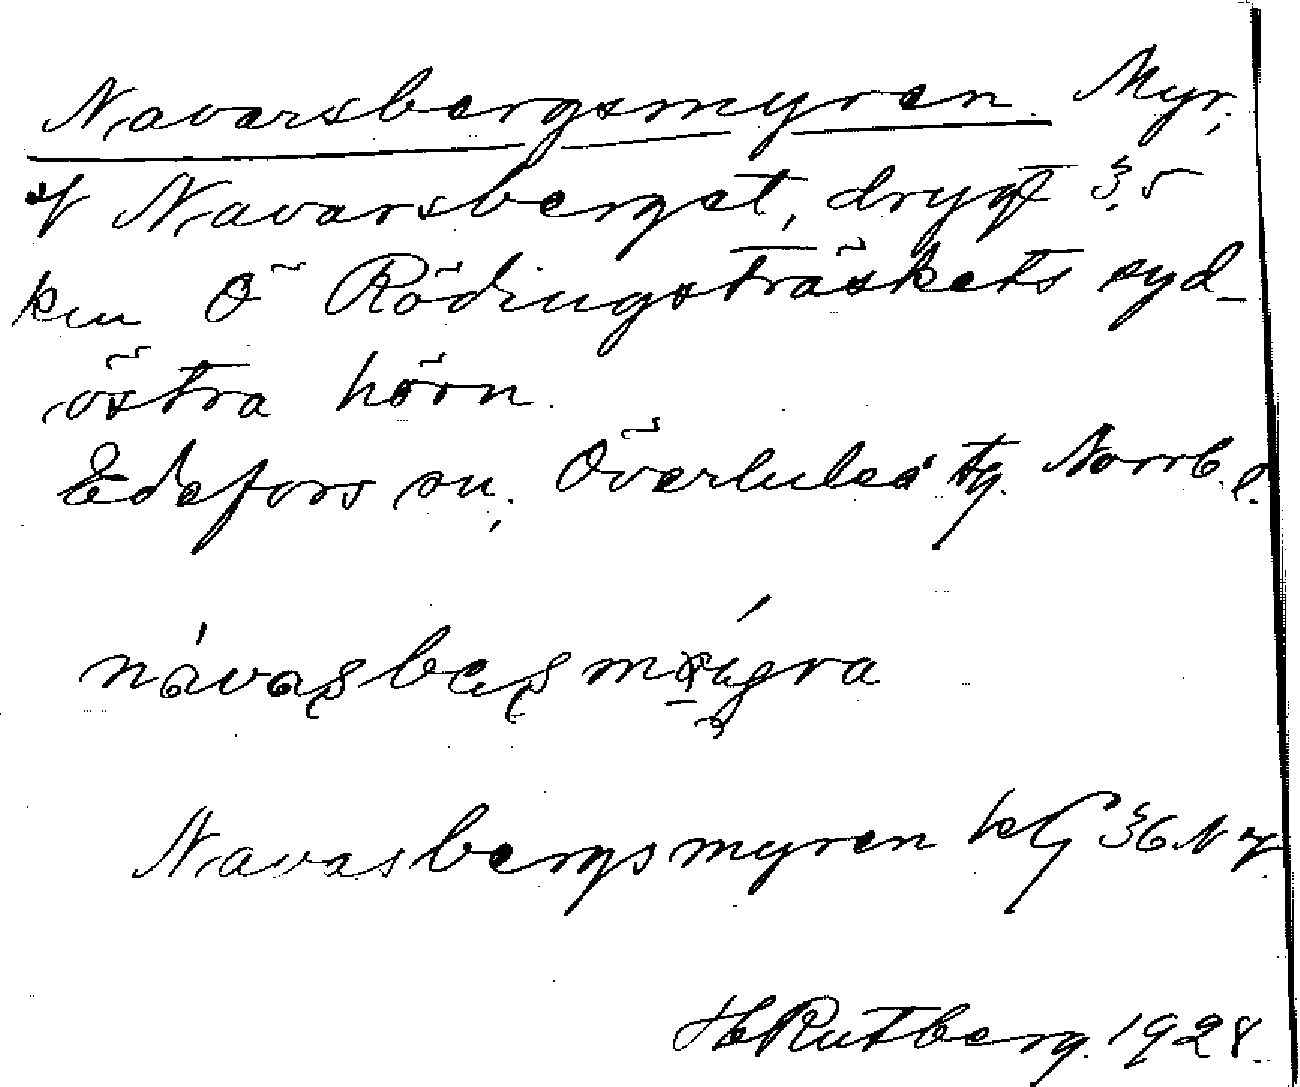 Navarsbergsmyren Myr,
V Navarsberget, drygt 3.5
km Ö Rödingsträskets syd-
östra hörn.
Edefors sn, Överluleå tg. Norrb. l.
Navasbergsmyren kG 36 NV
HRutberg. 1928.